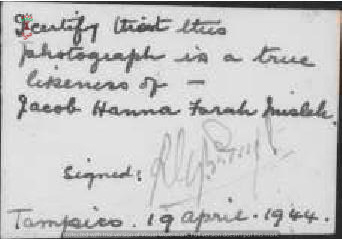 I certify that this
photograph is a true
likeness of —
Jacob Hanna Farah
Signed:
Tampico. 19 April. 1944.